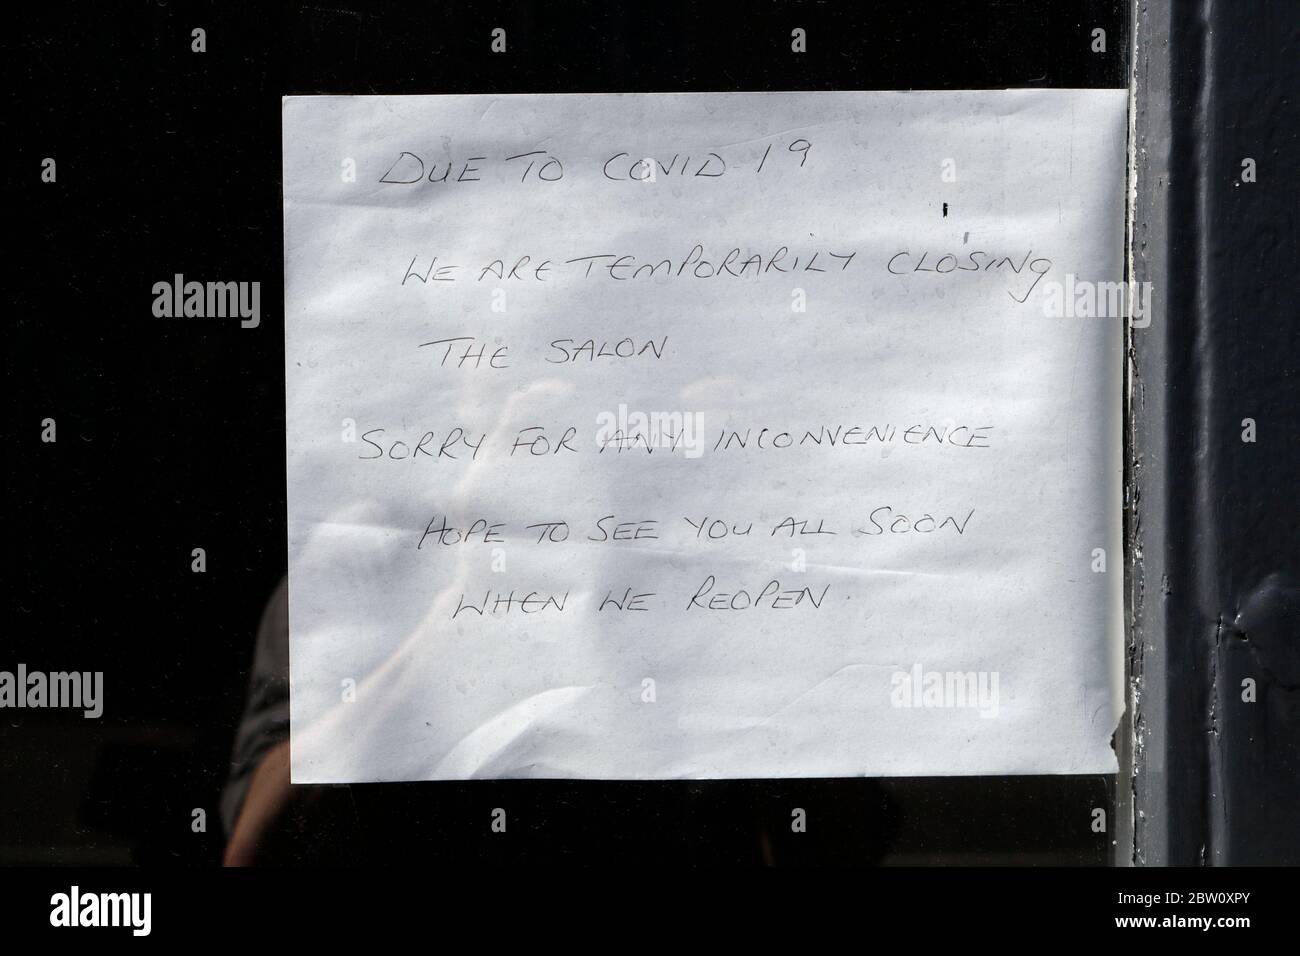 DUE TO COVID-19
WE ARE TEMPORARILY CLOSING
THE SALON.
SORRY FOR ANY INCONVENIENCE
HOPE TO SEE YOU ALL SOON
WHEN WE REOPEN.
alamy
alamy
alamy
alamy
alamy
alamy
Image ID: 2BW0XPY
www.alamy.com